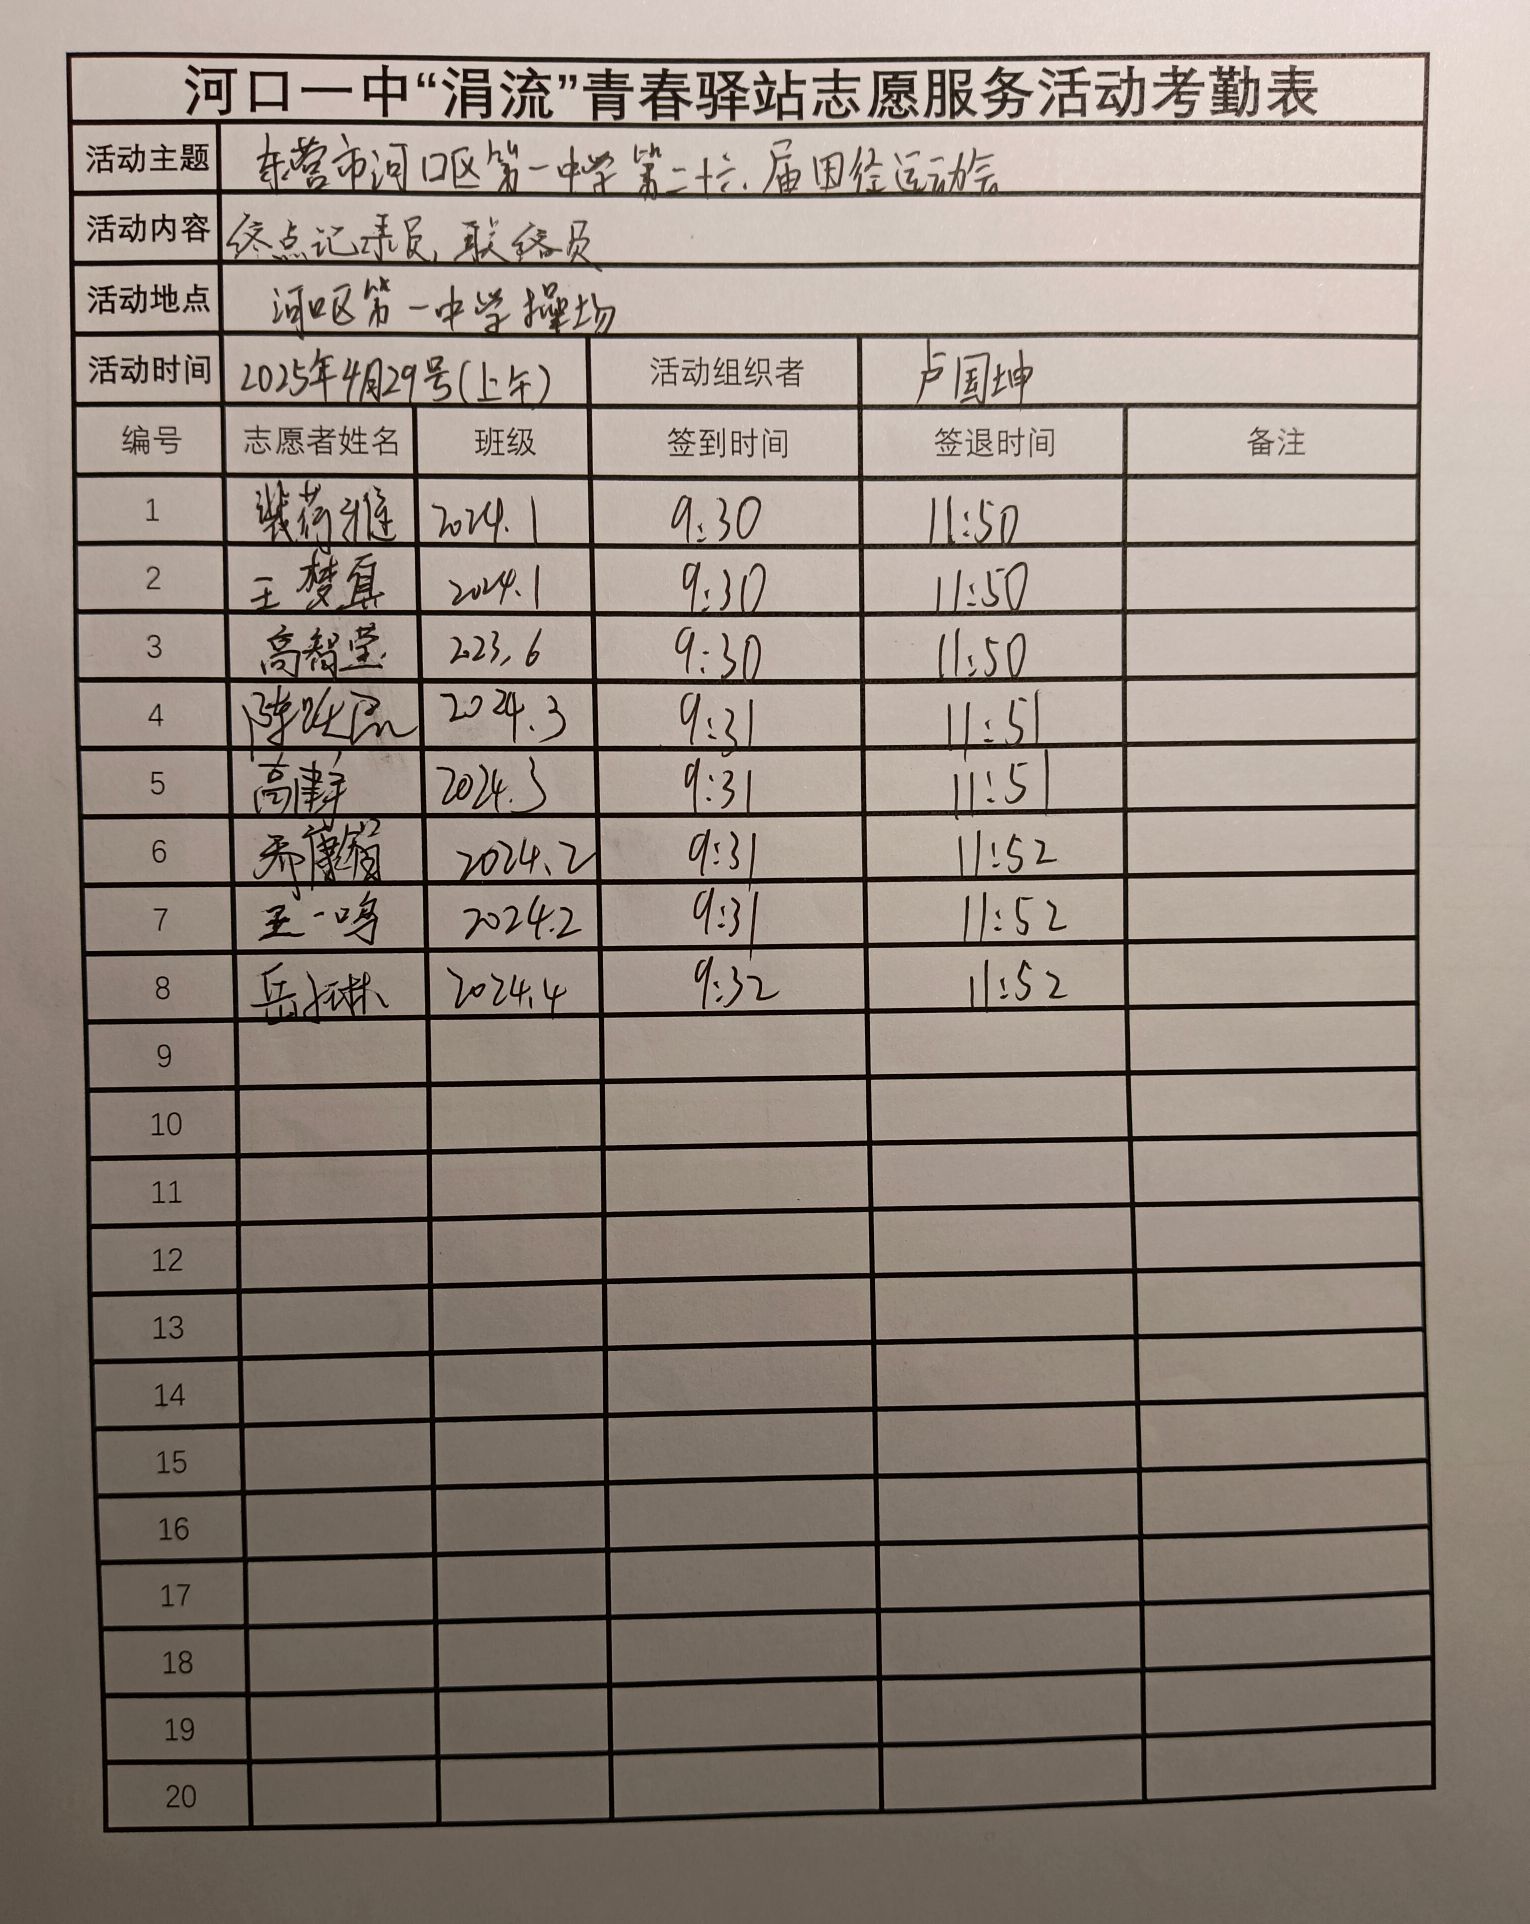 河口一中“涓流”青春驿站志愿服务活动考勤表
活动主题 东营市河口区第一中学第二十六届田径运动会
活动内容 终点记录员,联络员
活动地点 河口区第一中学操场
活动时间 2025年4月29号(上午) 活动组织者 卢国坤
编号 志愿者姓名 班级 签到时间 签退时间 备注
1 2024.1 9:30 11:50
2 王梦真 2024.1 9:30 11:50
3 高智莹 223.6 9:30 11:50
4 2024.3 9:31 11:51
5 2024.3 9:31 11:51
6 2024.2 9:31 11:52
7 王一鸣 2024.2 9:31 11:52
8 2024.4 9:32 11:52
9
10
11
12
13
14
15
16
17
18
19
20